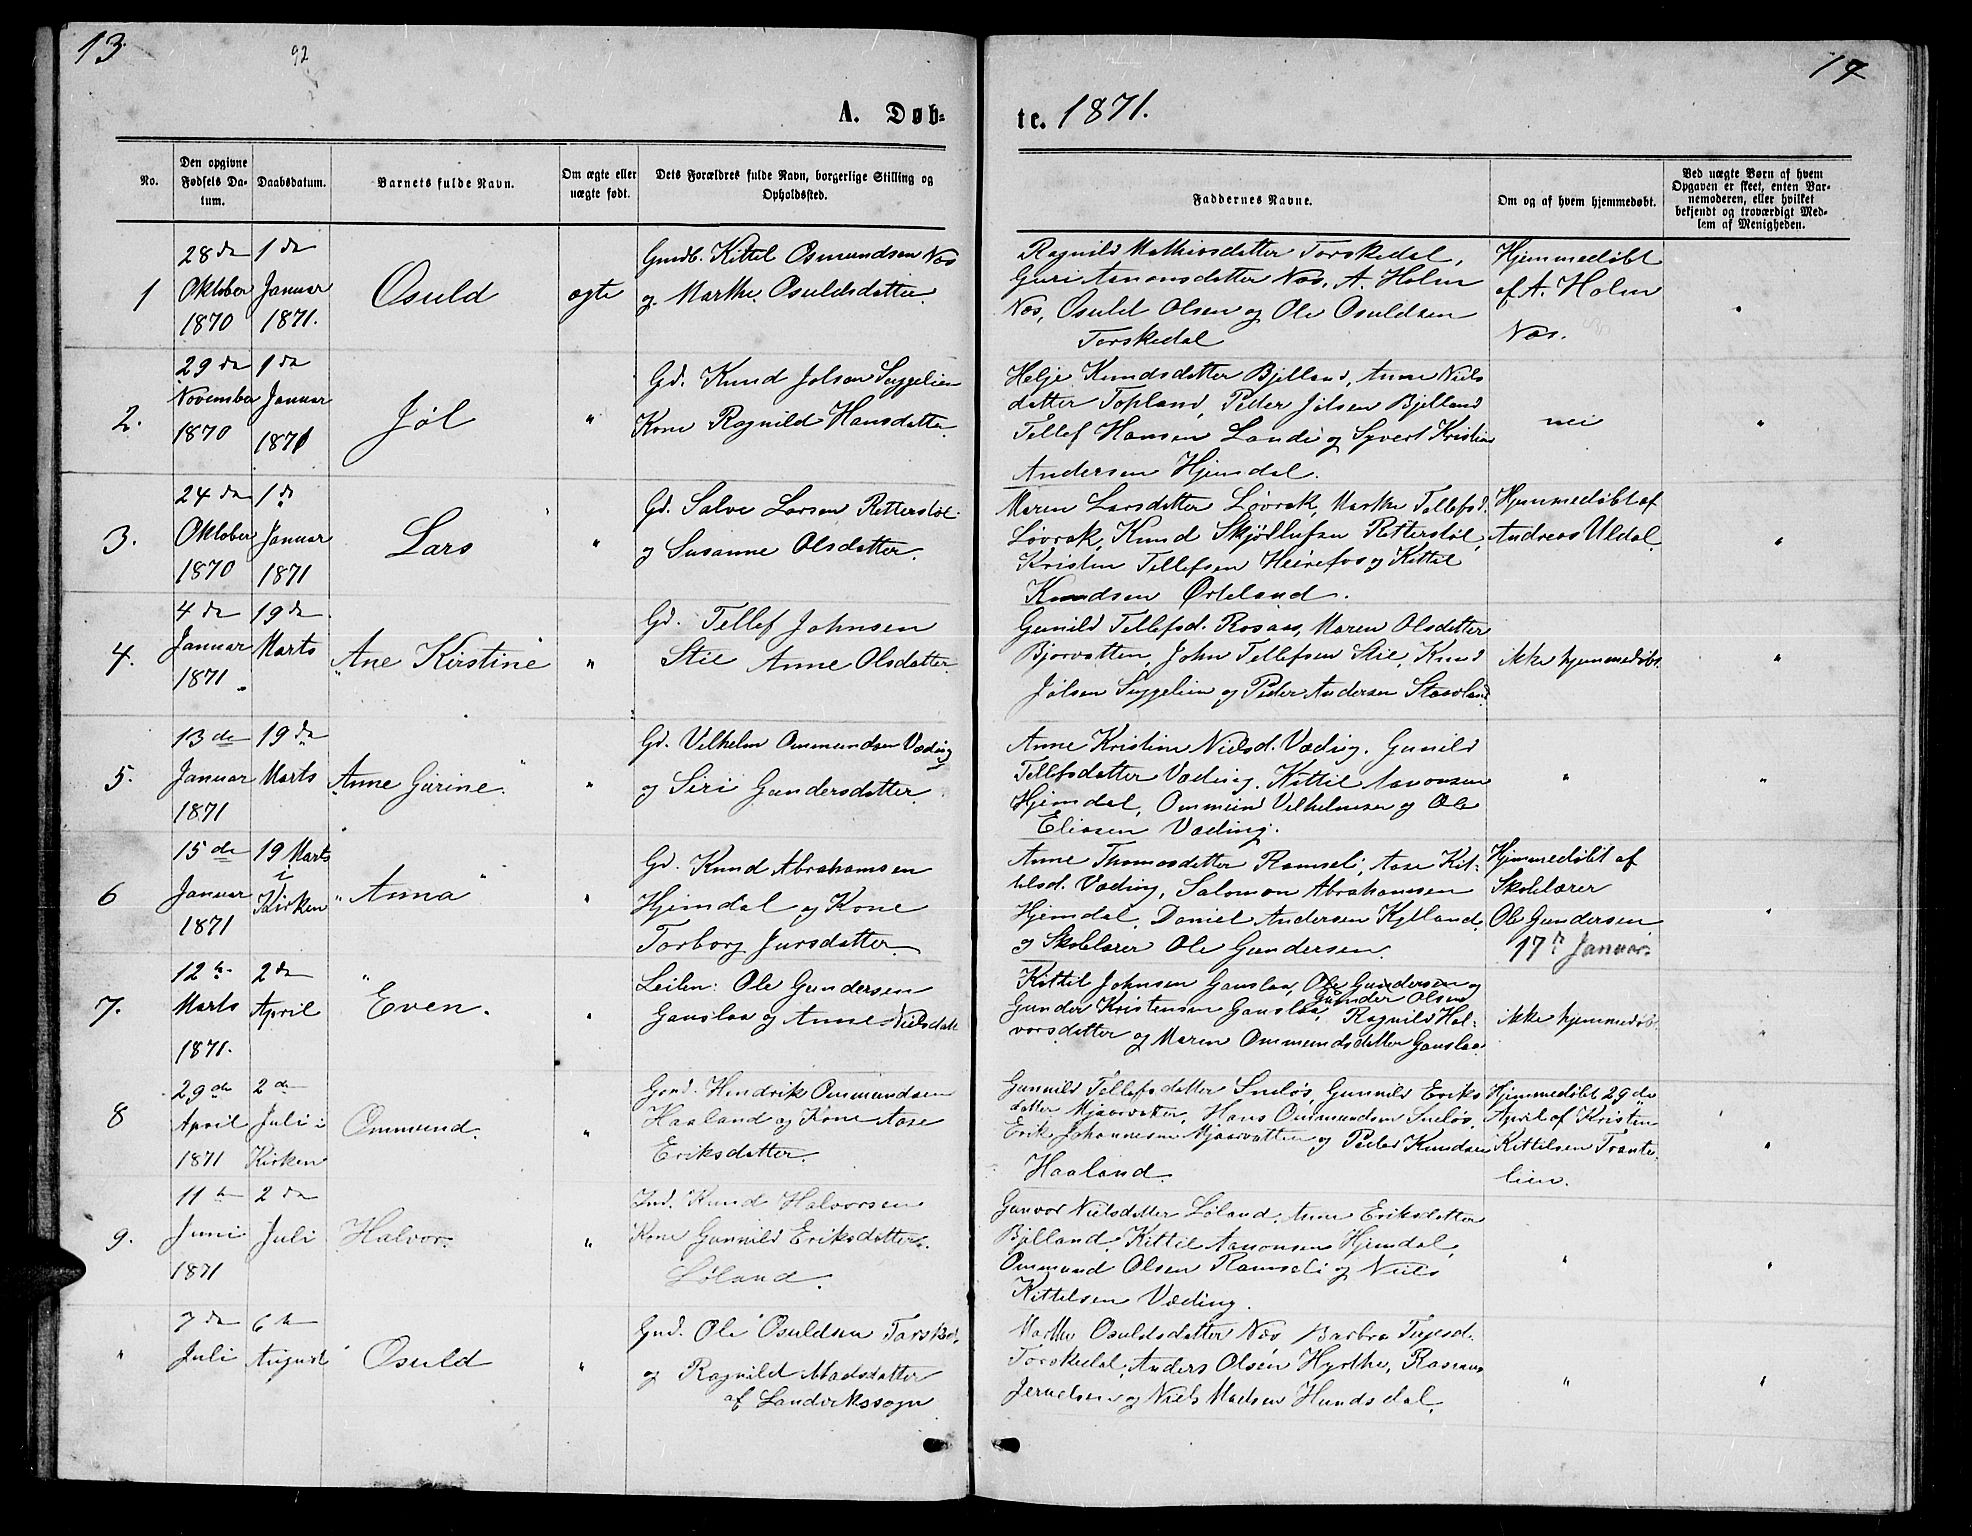 13.
92
17
A. Døb-
te. 1871.
No.
Den opgivne Fødsels Da-tum.
Daabsdatum.
Barnets fulde Navn.
Om ægte eller uægte født.
Dets Forældres fulde Navn, borgerlige Stilling og Opholdssted.
Faddernes Navne.
Om og af hvem hjemmedøbt.
Ved uægte Børn af hvem Opgaven er skeet, enten Bar-nemoderen, eller hvilket bekjendt og troværdigt Med-lem af Menigheden.
1
28de Oktober 1870
1de Januar 1871.
Osuld
ægte
Gmdb. Kittel Osmundsen Næs
og Marthe Osuldsdatter.
Ragnild Mathiasdatter Torskedal,
Guri Aanonsdatter Næs, A. Holm
Næs, Osuld Olsen og Ole Osuldsen
Torskedal
Hjemmedøbt
af A. Holm
Næs.
"
2.
29de November 1870
1de Januar 1871
Jøl
"
Gd. Knud Jolsen Suggelien
Kone Ragnild Hansdatter.
Helje Knudsdatter Bjelland, Anne Niels
datter Topland, Peder Jølsen Bjelland
Tellef Hansen Lande og Syvert Kristian
Andersen Hjemdal.
nei
"
3.
24de Oktober 1870
1de Januar 1871
Lars
"
Gd. Salve Larsen Retterstøl
og Susanne Olsdatter.
Maren Larsdatter Løvrak, Marthe Tellefsd.
Løvrak, Knud Skjødlufsen Retterstøl,
Kristen Tellefsen Heirefos og Kittil
Knudsen Ørteland.
Hjemmedøbt af
Andreas Uldal.
"
4.
4de Januar 1871.
19de Marts
Ane Kirstine
"
Gd. Tellef Johnsen
Stie Anne Olsdatter.
Gunild Tellefsd. Rosaas, Maren Olsdatter
Bjorvatten, John Tellefsen Stie, Knud
Jølsen Suggelien og Peder Andersen Stavland
ikke hjemmedøbt.
"
5.
13de Januar 1871
19de Marts
Anne Gurine
"
Gd. Vilhelm Ommundsen Væding
og Siri Gundersdatter.
Anne Kristine Nielsd. Væding, Gunild
Tellefsdatter Væding, Kittil Aanonsen
Hjemdal, Ommund Vilhelmsen og Ole
Eliasen Væding.
"
"
6
15de Januar 1871
19 Marts i Kirken
"Anna"
"
Gd. Knud Abrahamsen
Hjemdal og Kone
Torborg Jursdatter.
Anne Thomasdatter Ramseli, Aase Kit-
tilsd. Væding, Salomon Abrahamsen
Hjemdal, Daniel Andersen Kylland,
og Skolelærer Ole Gundersen.
Hjemmedøbt af
Skolelærer
Ole Gundersen
17de Januar.
"
7.
12te Marts 1871.
2de April
Even.
"
Leilen: Ole Gundersen
Gauslaa og Anne Nielsdatt
Kittil Johnsen Gauslaa, Ole Gundersen og
Gunder Olsen
Gunder Kristensen Gauslaa, Ragnild Hal-
vorsdatter og Maren Ommundsdatter Gauslaa
ikke hjemmedøbt.
"
8
29de April 1871
2de Juli i Kirken
Ommund.
"
Gmd. Hendrik Ommundsen
Haaland og Kone Aase
Eriksdatter.
Gunnild Tellefsdatter Sneløs, Gunnild Eriks
datter Mjaavatten, Hans Ommundsen Sneløs,
Erik Johannesen Mjaavatten og Peder Knudsen
Haaland.
Hjemmedøbt 29de
April af Kristen
Kittelsen Trante-
lien.
"
9.
11te Juni 1871
2de Juli
Halvor.
"
Ind. Knud Halvorsen
Kone Gunnild Eriksdatter.
Løland.
Gunvor Nielsdatter Løland, Anne Eriksdatter
Bjelland, Kittil Aanonsen Hjemdal,
Ommund Olsen Ramseli og Niels
Kittelsen Væding.
"
"
"
7de Juli
6te August
Osuld
"
Gmd. Ole Osuldsen Torsked.
og Ragnild Madsdatter
af Landvikssogn
Marthe Osuldsdatter Næs Barbro Terjesd.
Torskedal, Anders Olsen Hyrthe, Rasmus
og Niels Madsen Hundsdal.
"
"